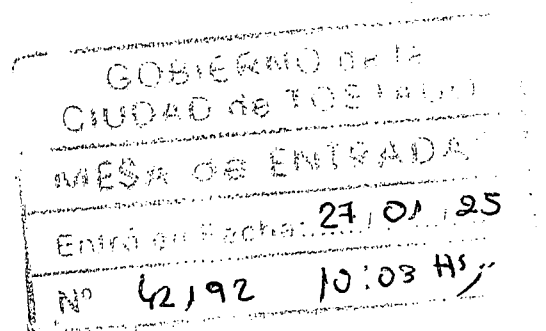 GOBIERNO de la
CIUDAD de TOSTADO
MESA DE ENTRADA
Entró en Fecha: 27, 01, 25
Nº 42192 10:03 Hs